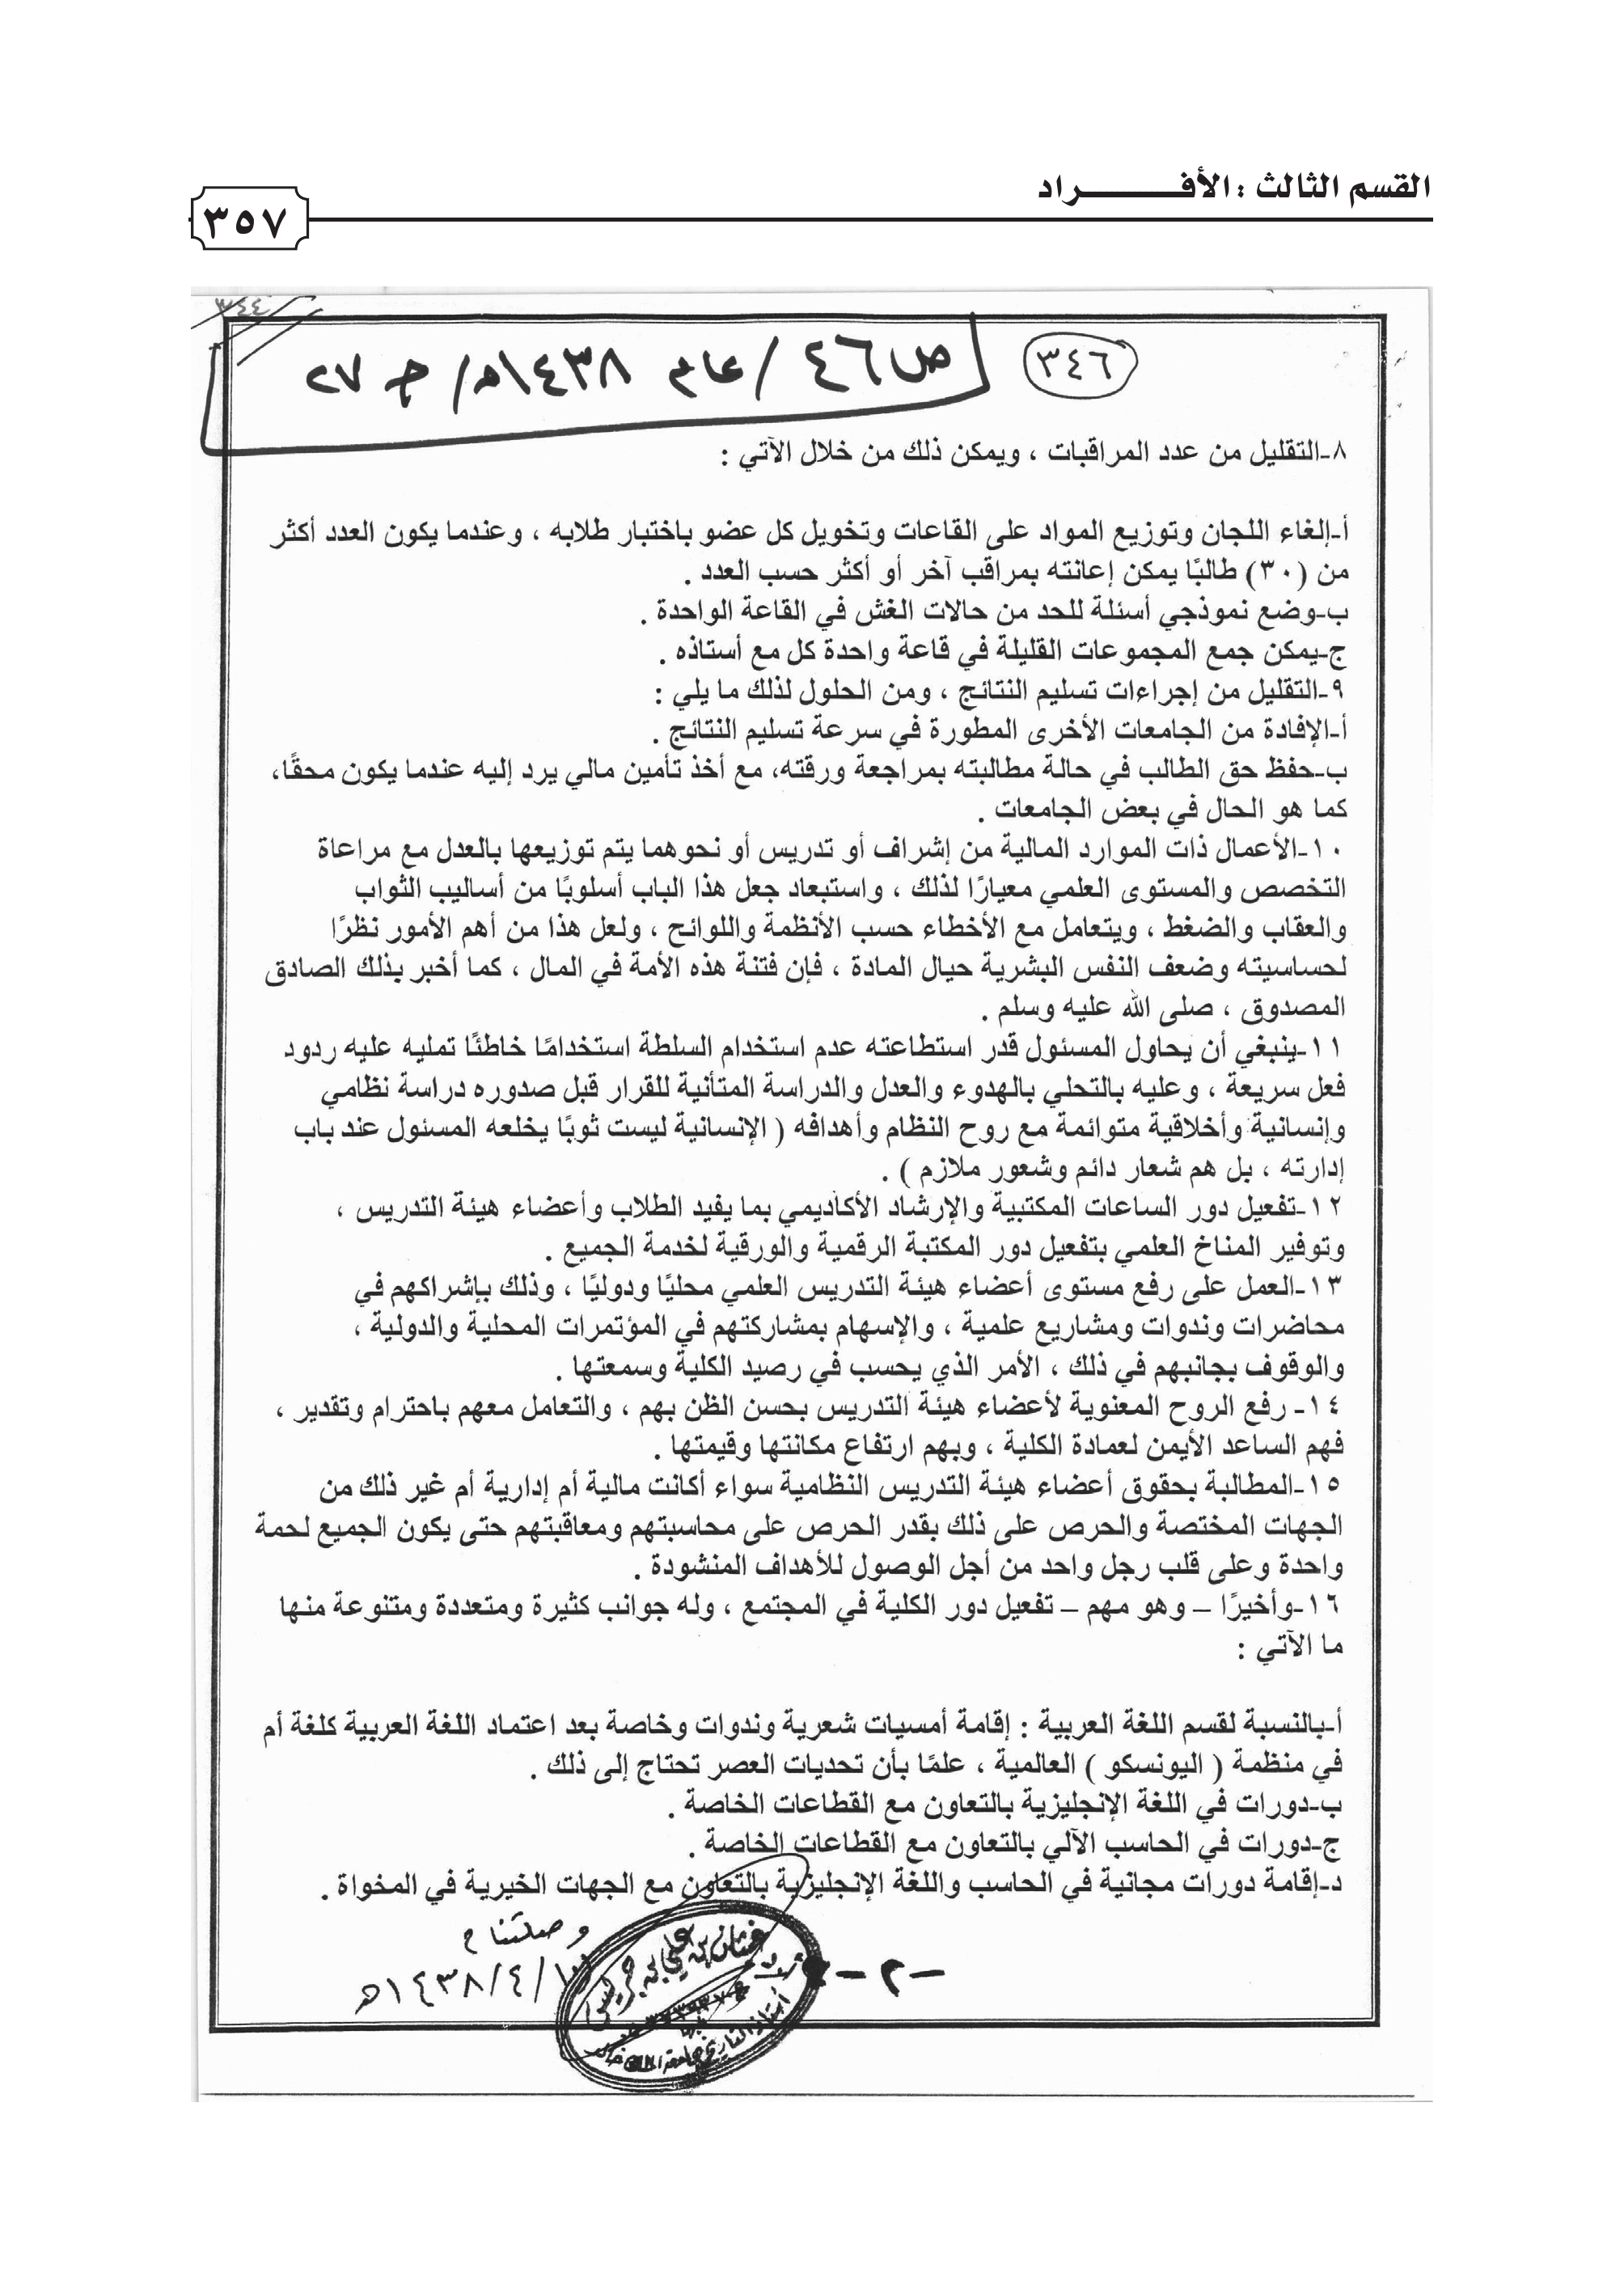 القسم الثالث : الأفـــــــــراد
٣٥٧
٣٤٤
٣٤٦
ص ٤٦ / عام ١٤٣٨هـ/ ج ٢٧
٨-التقليل من عدد المراقبات ، ويمكن ذلك من خلال الآتي :
أ-إلغاء اللجان وتوزيع المواد على القاعات وتخويل كل عضو باختبار طلابه ، وعندما يكون العدد أكثر
من (٣٠) طالبًا يمكن إعانته بمراقب آخر أو أكثر حسب العدد .
ب-وضع نموذجي أسئلة للحد من حالات الغش في القاعة الواحدة .
ج-يمكن جمع المجموعات القليلة في قاعة واحدة كل مع أستاذه .
٩-التقليل من إجراءات تسليم النتائج ، ومن الحلول لذلك ما يلي :
أ-الإفادة من الجامعات الأخرى المطورة في سرعة تسليم النتائج .
ب-حفظ حق الطالب في حالة مطالبته بمراجعة ورقته، مع أخذ تأمين مالي يرد إليه عندما يكون محقًا،
كما هو الحال في بعض الجامعات .
١٠-الأعمال ذات الموارد المالية من إشراف أو تدريس أو نحوهما يتم توزيعها بالعدل مع مراعاة
التخصص والمستوى العلمي معيارًا لذلك ، واستبعاد جعل هذا الباب أسلوبًا من أساليب الثواب
والعقاب والضغط ، ويتعامل مع الأخطاء حسب الأنظمة واللوائح ، ولعل هذا من أهم الأمور نظرًا
لحساسيته وضعف النفس البشرية حيال المادة ، فإن فتنة هذه الأمة في المال ، كما أخبر بذلك الصادق
المصدوق ، صلى الله عليه وسلم .
١١-ينبغي أن يحاول المسئول قدر استطاعته عدم استخدام السلطة استخدامًا خاطئًا تمليه عليه ردود
فعل سريعة ، وعليه بالتحلي بالهدوء والعدل والدراسة المتأنية للقرار قبل صدوره دراسة نظامي
وإنسانية وأخلاقية متوائمة مع روح النظام وأهدافه ( الإنسانية ليست ثوبًا يخلعه المسئول عند باب
إدارته ، بل هم شعار دائم وشعور ملازم ) .
١٢-تفعيل دور الساعات المكتبية والإرشاد الأكاديمي بما يفيد الطلاب وأعضاء هيئة التدريس ،
وتوفير المناخ العلمي بتفعيل دور المكتبة الرقمية والورقية لخدمة الجميع .
١٣-العمل على رفع مستوى أعضاء هيئة التدريس العلمي محليًا ودوليًا ، وذلك بإشراكهم في
محاضرات وندوات ومشاريع علمية ، والإسهام بمشاركتهم في المؤتمرات المحلية والدولية ،
والوقوف بجانبهم في ذلك ، الأمر الذي يحسب في رصيد الكلية وسمعتها .
١٤- رفع الروح المعنوية لأعضاء هيئة التدريس بحسن الظن بهم ، والتعامل معهم باحترام وتقدير ،
فهم الساعد الأيمن لعمادة الكلية ، وبهم ارتفاع مكانتها وقيمتها .
١٥-المطالبة بحقوق أعضاء هيئة التدريس النظامية سواء أكانت مالية أم إدارية أم غير ذلك من
الجهات المختصة والحرص على ذلك بقدر الحرص على محاسبتهم ومعاقبتهم حتى يكون الجميع لحمة
واحدة وعلى قلب رجل واحد من أجل الوصول للأهداف المنشودة .
١٦-وأخيرًا – وهو مهم – تفعيل دور الكلية في المجتمع ، وله جوانب كثيرة ومتعددة ومتنوعة منها
ما الآتي :
أ-بالنسبة لقسم اللغة العربية : إقامة أمسيات شعرية وندوات وخاصة بعد اعتماد اللغة العربية كلغة أم
في منظمة ( اليونسكو ) العالمية ، علمًا بأن تحديات العصر تحتاج إلى ذلك .
ب-دورات في اللغة الإنجليزية بالتعاون مع القطاعات الخاصة .
ج-دورات في الحاسب الآلي بالتعاون مع القطاعات الخاصة .
د-إقامة دورات مجانية في الحاسب واللغة الإنجليزية بالتعاون مع الجهات الخيرية في المخواة .
وصلتنا
/٤/١٤٣٨هـ
-٢-
غيثان بن علي بن جريس
أستاذ التاريخ جامعة الملك خالد